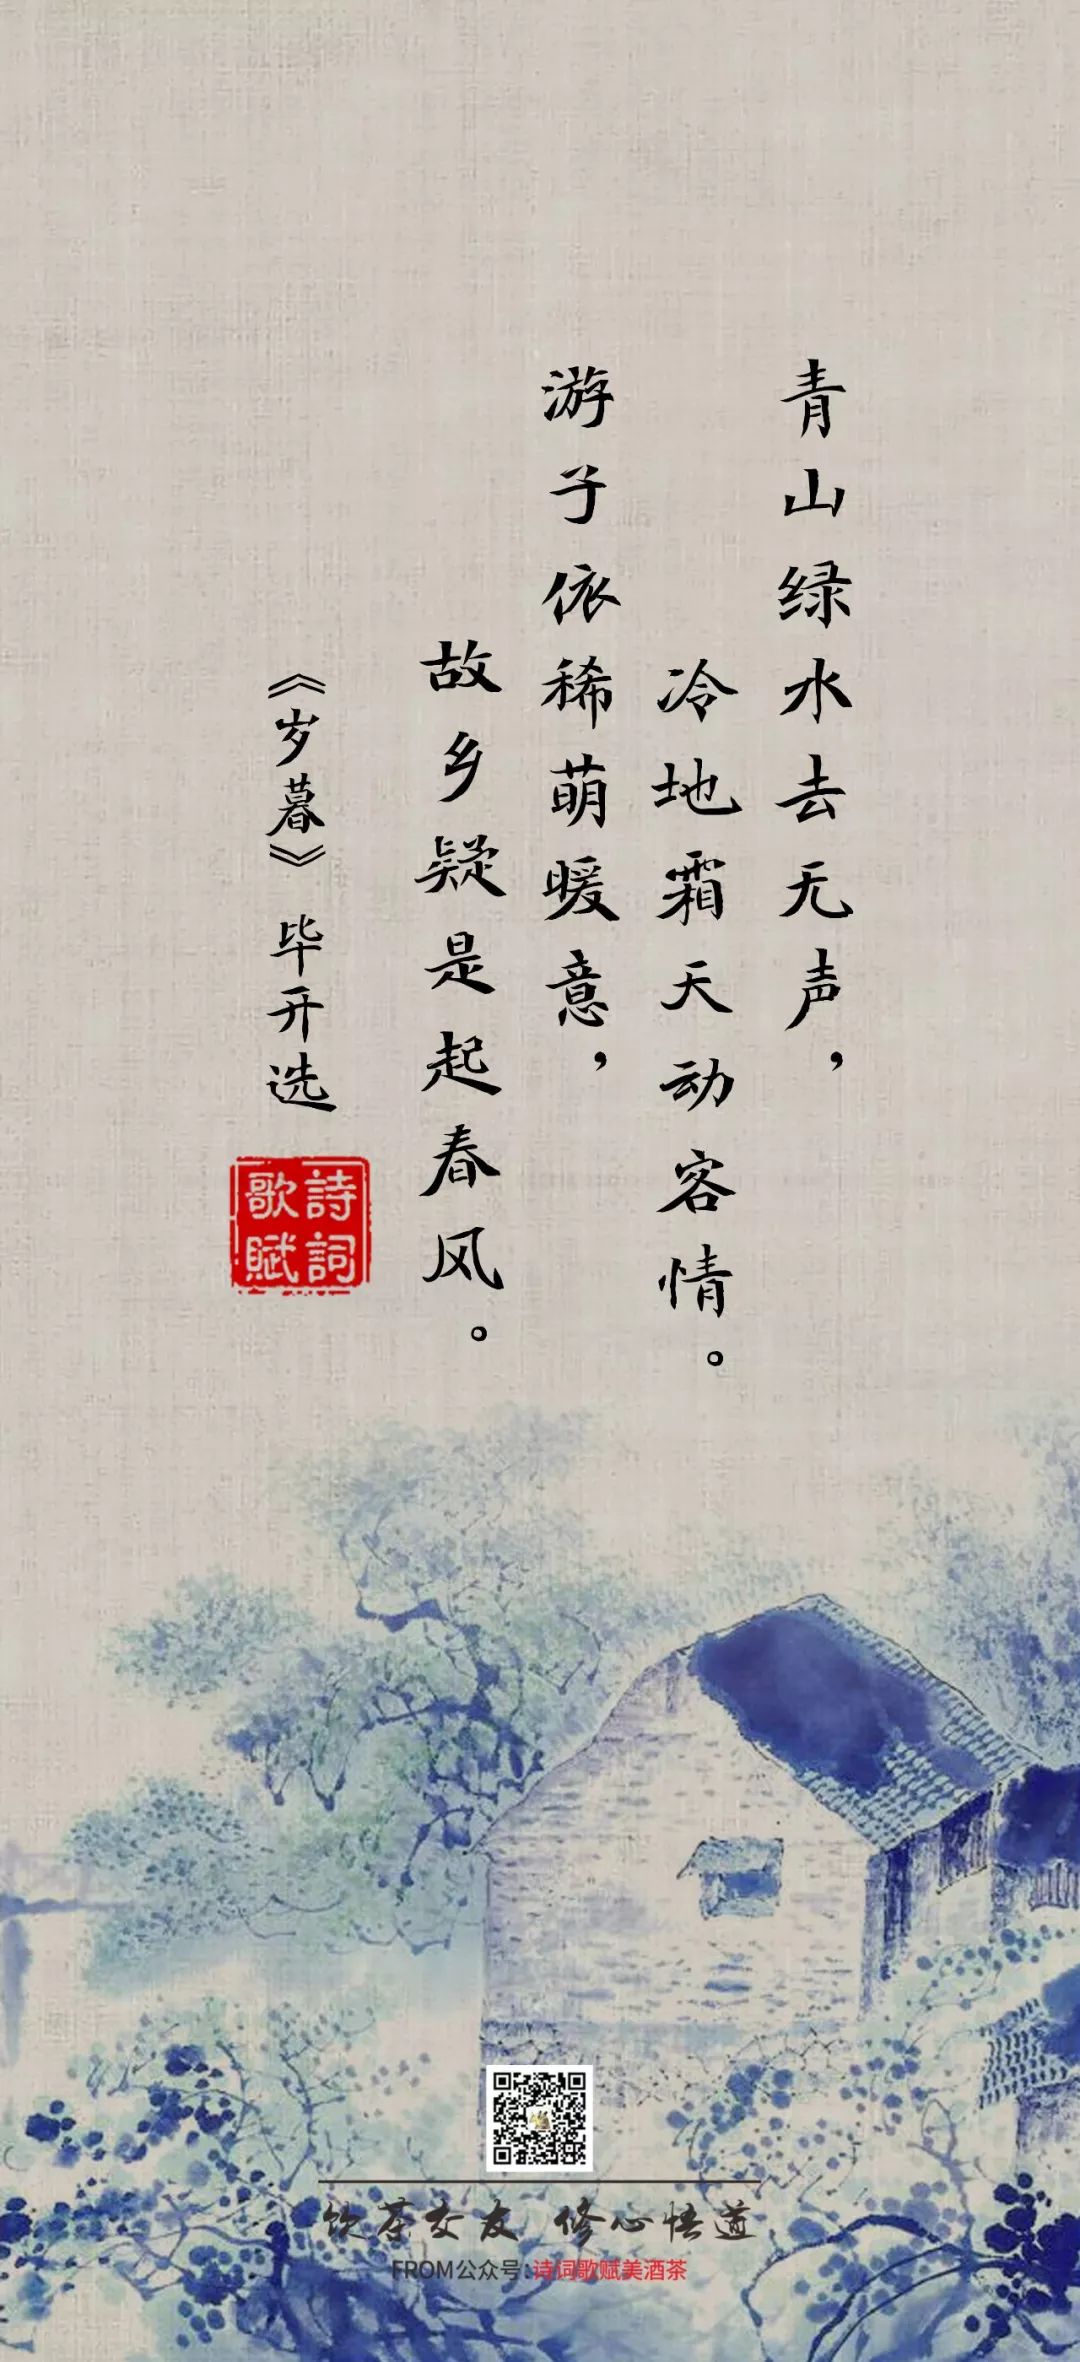 青山绿水去无声，
冷地霜天动客情。
游子依稀萌暖意，
故乡疑是起春风。
《岁暮》 毕开选
詩詞
歌賦
饮茶交友 修心悟道
FROM公众号:诗词歌赋美酒茶